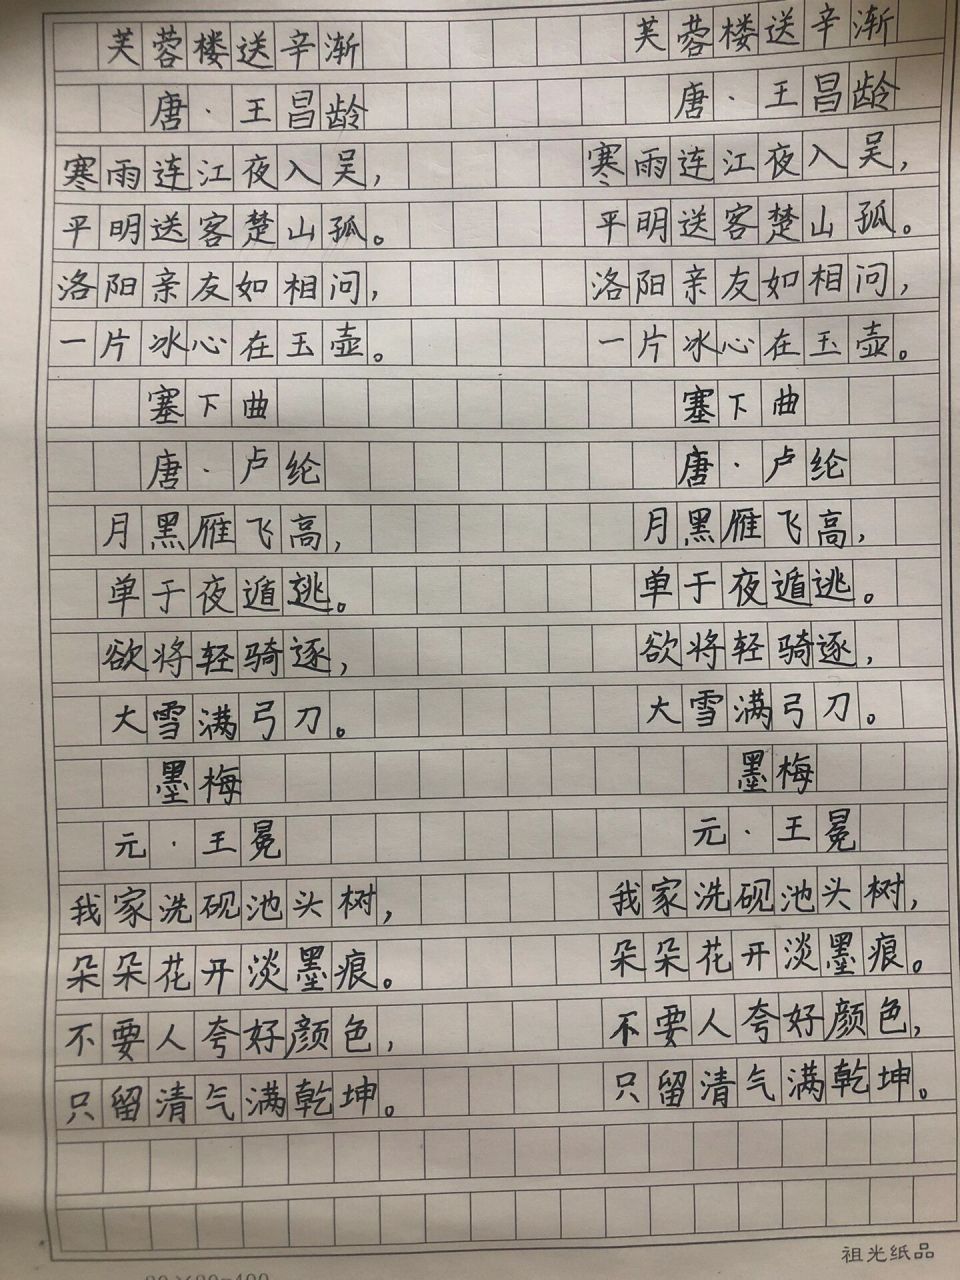 芙蓉楼送辛渐 芙蓉楼送辛渐
唐·王昌龄 唐·王昌龄
寒雨连江夜入吴, 寒雨连江夜入吴,
平明送客楚山孤。 平明送客楚山孤。
洛阳亲友如相问, 洛阳亲友如相问,
一片冰心在玉壶。 一片冰心在玉壶。
塞下曲 塞下曲
唐·卢纶 唐·卢纶
月黑雁飞高, 月黑雁飞高,
单于夜遁逃。 单于夜遁逃。
欲将轻骑逐, 欲将轻骑逐,
大雪满弓刀。 大雪满弓刀。
墨梅 墨梅
元·王冕 元·王冕
我家洗砚池头树, 我家洗砚池头树,
朵朵花开淡墨痕。 朵朵花开淡墨痕。
不要人夸好颜色, 不要人夸好颜色,
只留清气满乾坤。 只留清气满乾坤。
祖光纸品
20×20=400